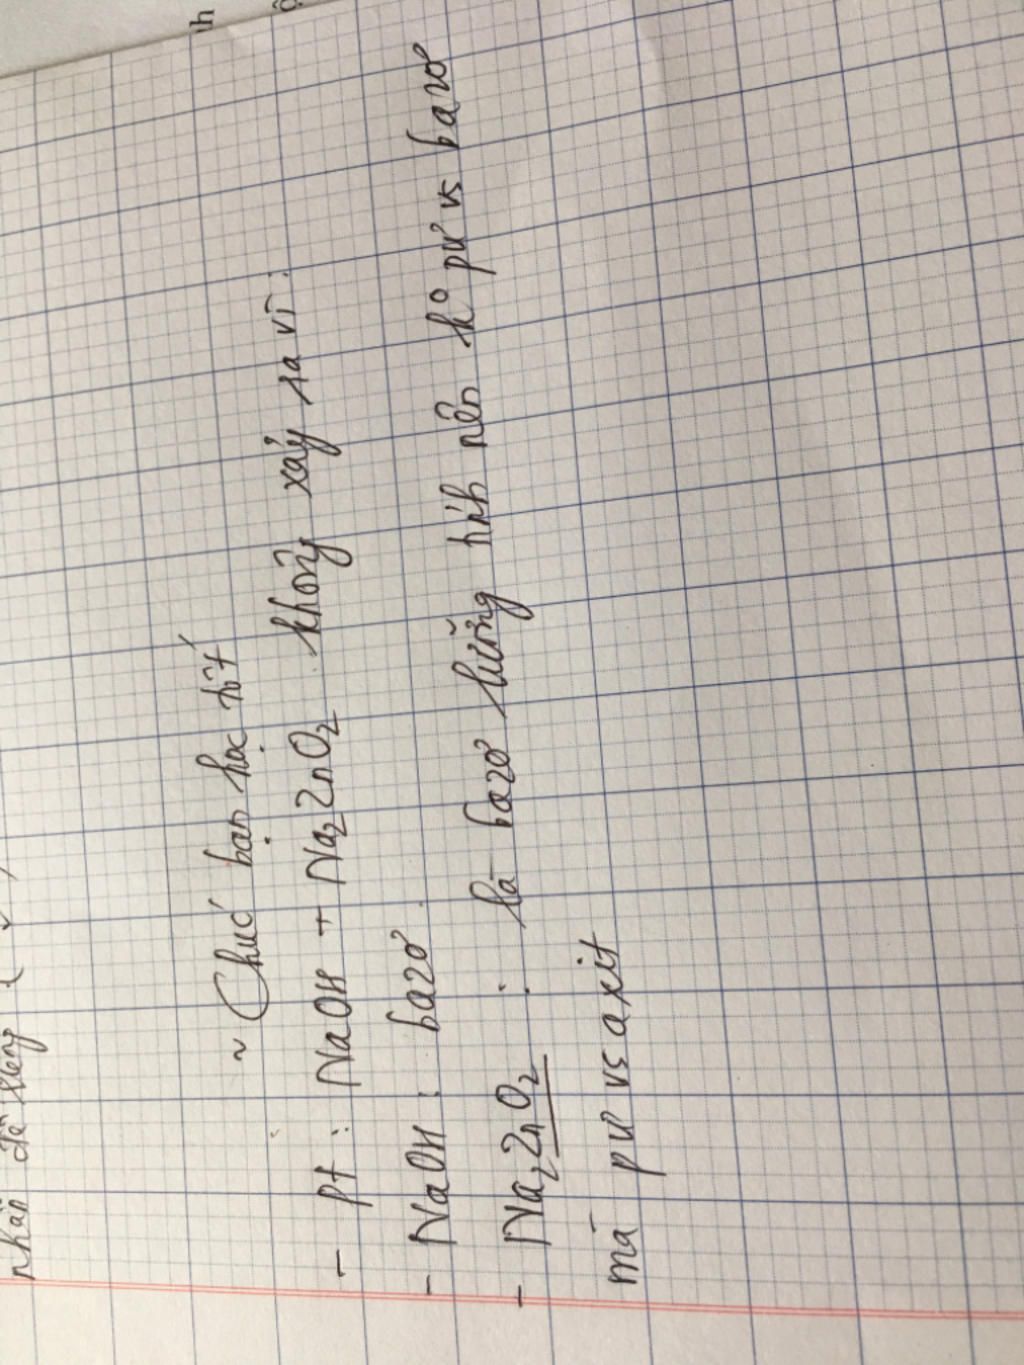 nhãn
~ Chúc bạn học tốt
- pt : NaOH + Na2ZnO2 không xảy ra vì :
- NaOH : bazơ
- Na2ZnO2 : là bazơ lưỡng tính nên ko pư vs bazơ
mà pư vs axit